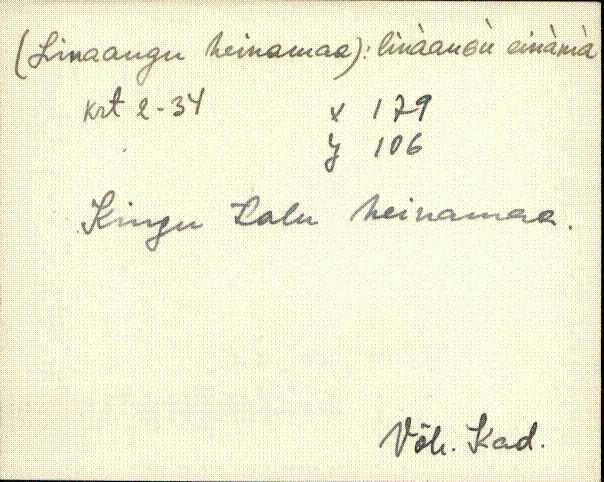 (Linaaugu heinamaa): linàauɢù einàmà
krt 2-34 x 179
y 106
Kingu talu heinamaa.
Võh. Kad.